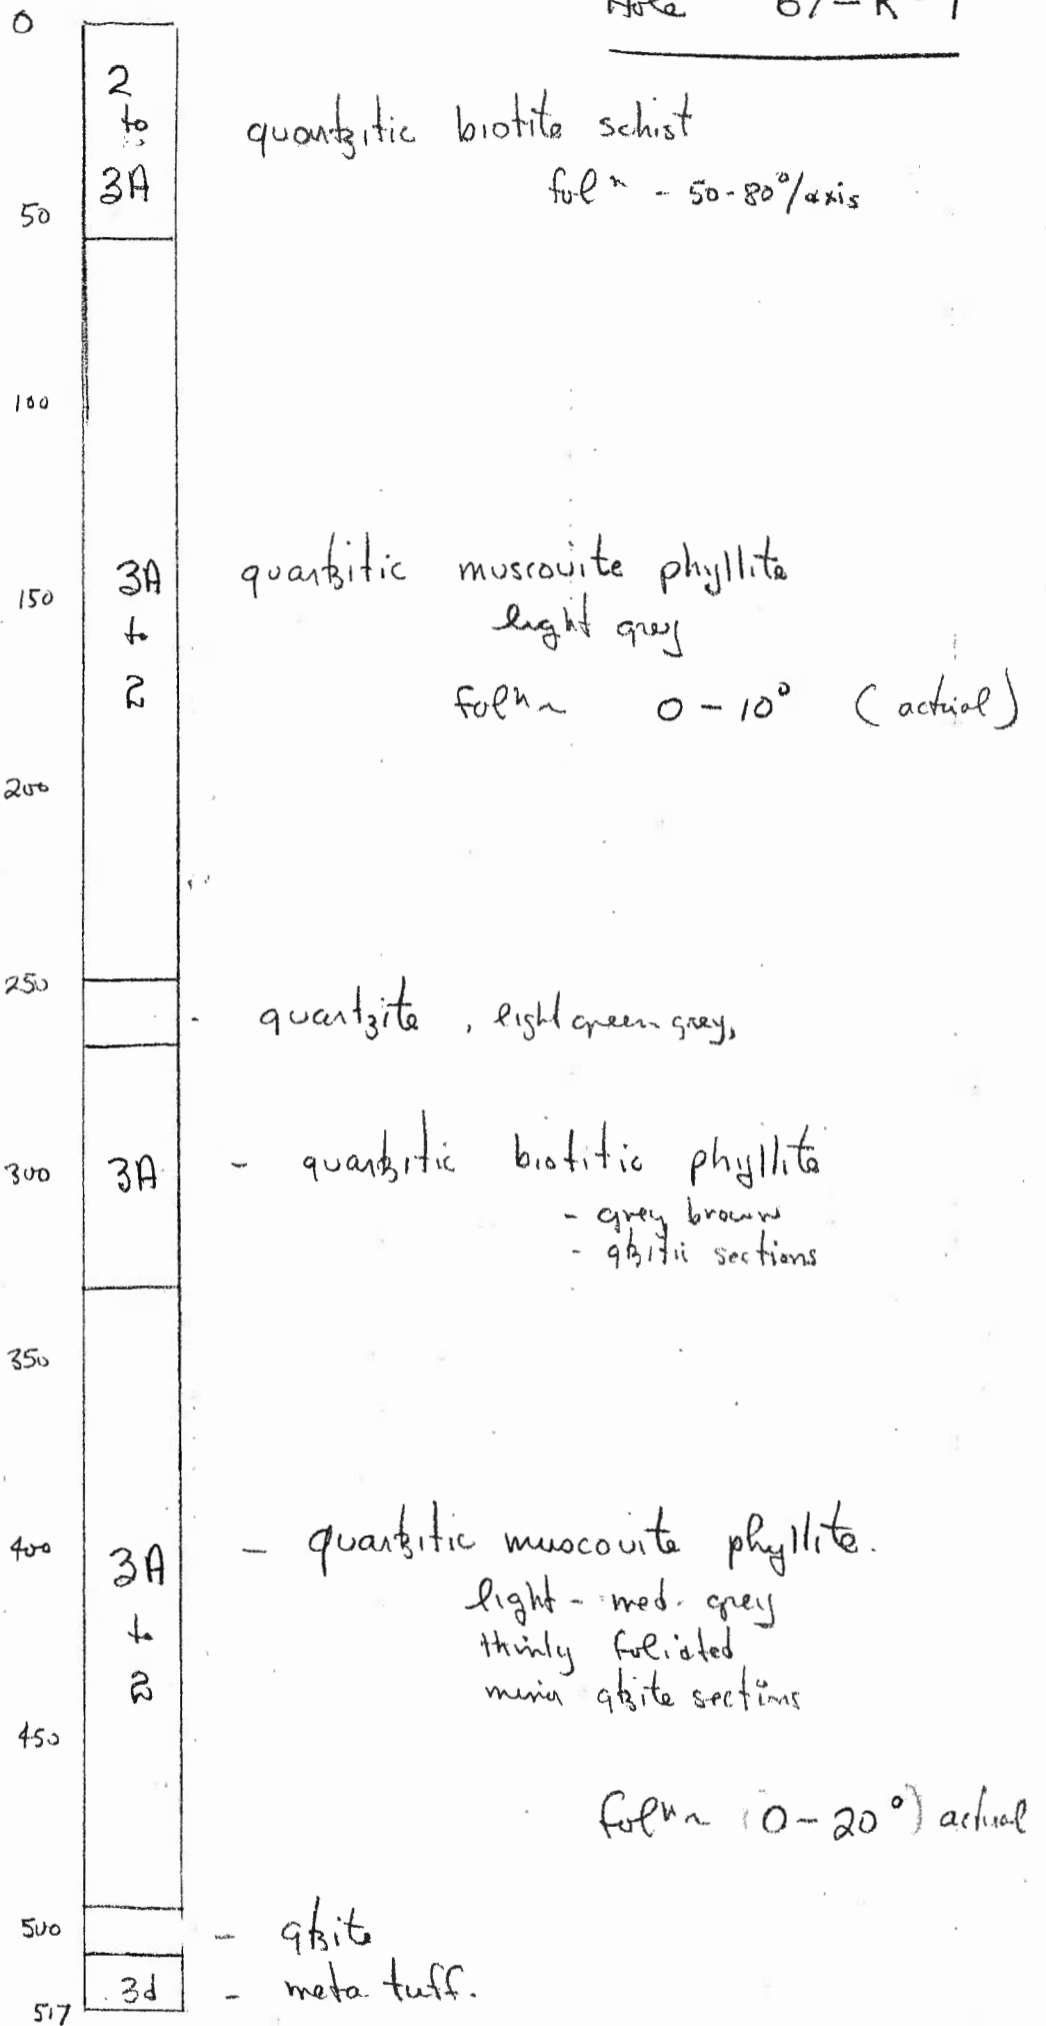 0
Hole 67-R-1
2
to
3A
quartzitic biotite schist
fol^n - 50-80°/axis
50
100
3A
to
2
quartzitic muscovite phyllite
150
light grey
fol^n ~ 0-10° (actual)
200
250
- quartzite, light green grey,
300
3A
- quartzitic biotitic phyllite
- grey brown
- qtzitic sections
350
400
3A
to
2
- quartzitic muscovite phyllite.
light - med. grey
thinly foliated
minor qtzite sections
450
fol^n ~ (0-20°) actual
500
- qtzite
3d
- meta tuff.
517